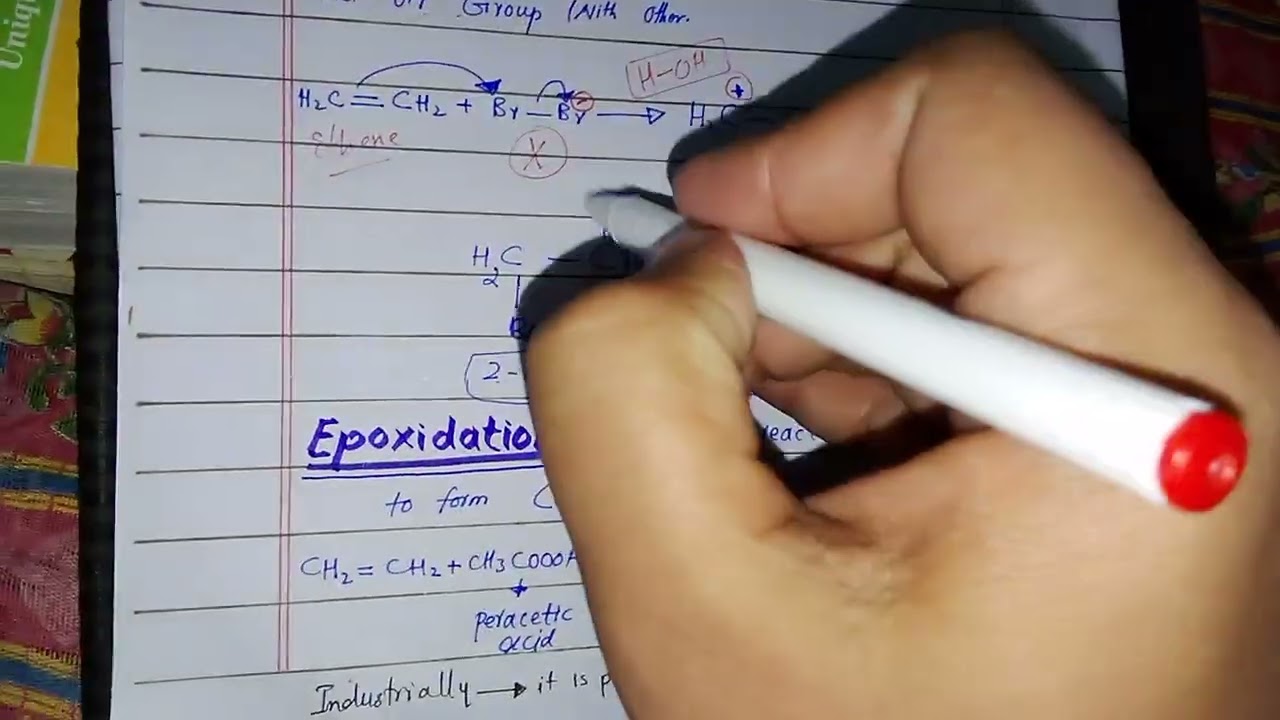 Unique
Group (With other.
H-OH
H₂C = CH₂ + Br — Br⊖ → H₂C ⊕
ethene
X
H₂C — C
2-
Epoxidatio
to form C
CH₂ = CH₂ + CH₃COOOH
peracetic
acid
Industrially → it is p